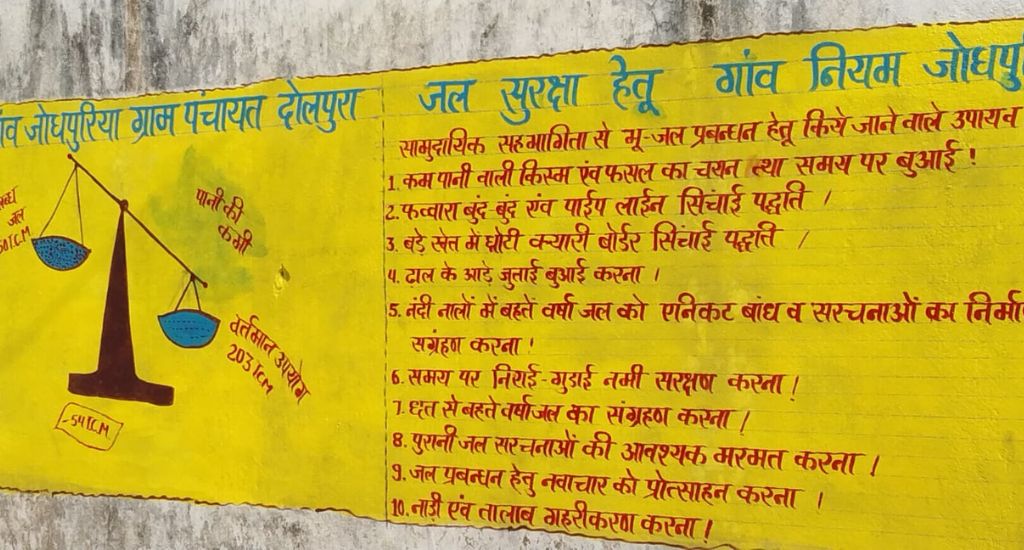 गांव जोधपुरिया ग्राम पंचायत दोलपुरा
पानी की
कमी
जल
वर्तमान उपयोग
203 TCM
-54 T.C.M.
जल सुरक्षा हेतू गांव नियम
सामुदायिक सहभागिता से भू-जल प्रबन्धन हेतू किये जाने वाले उपाय व
1. कम पानी वाली किस्म एंव फसल का चयन तथा समय पर बुआई !
2. फव्वारा बुंद बुंद एंव पाईप लाईन सिंचाई पद्धति ।
3. बड़े खेत मे छोटी क्यारी बोर्डर सिंचाई पद्धति ।
4. ढाल के आड़े जुताई बुआई करना ।
5. नंदी नालों में बहते वर्षा जल को एनिकट बांध व सरचनाओं का
संग्रहण करना !
6. समय पर निराई-गुडाई नमी सरक्षण करना !
7. छत से बहते वर्षाजल का संग्रहण करना !
8. पुरानी जल सरचनाओं की आवश्यक मरमत करना !
9. जल प्रबन्धन हेतु नवाचार को प्रोत्साहन करना ।
10. नाड़ी एंव तालाब गहरीकरण करना !